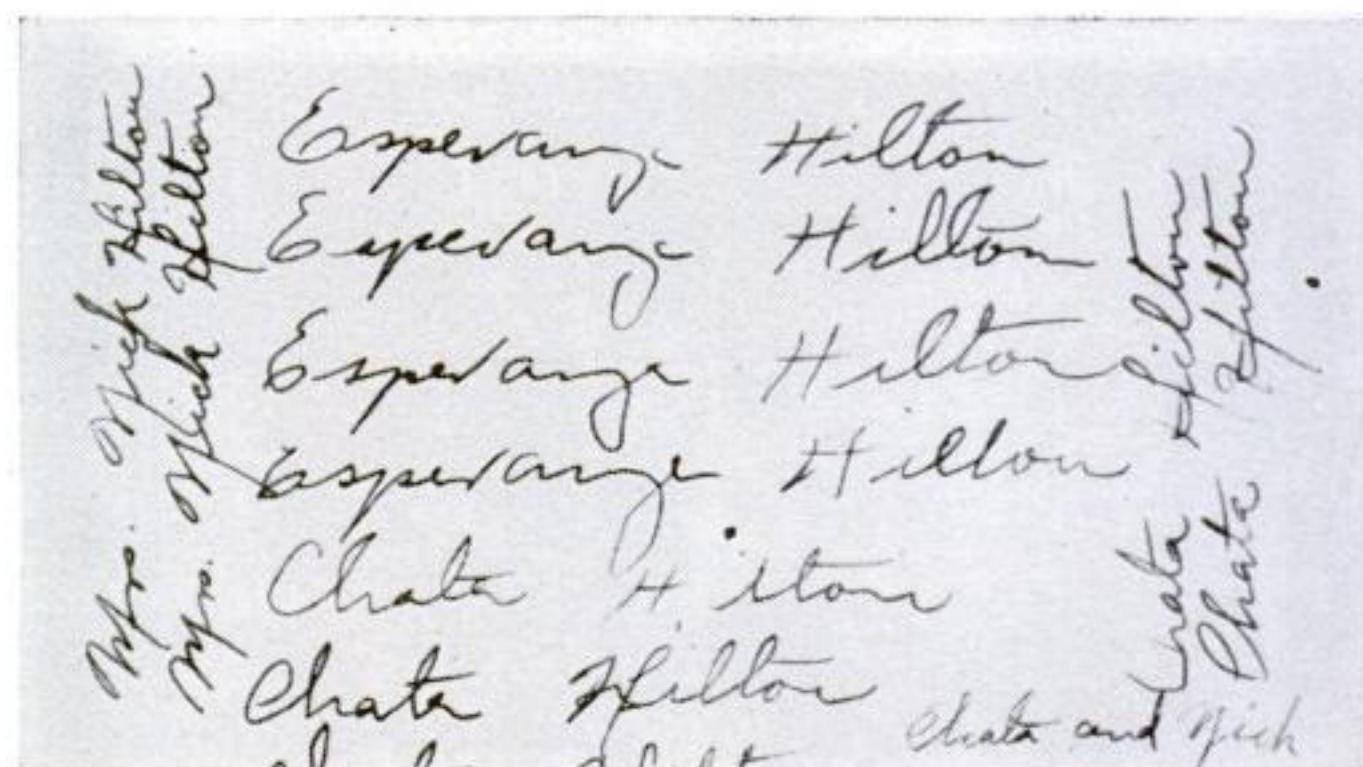 Mrs. Nick Hilton
Mrs. Nick Hilton
Esperanza Hilton
Esperanza Hilton
Esperanza Hilton
Esperanza Hilton
Chata Hilton
Chata Hilton
Chata Hilton
Chata Hilton
Chata and Nick